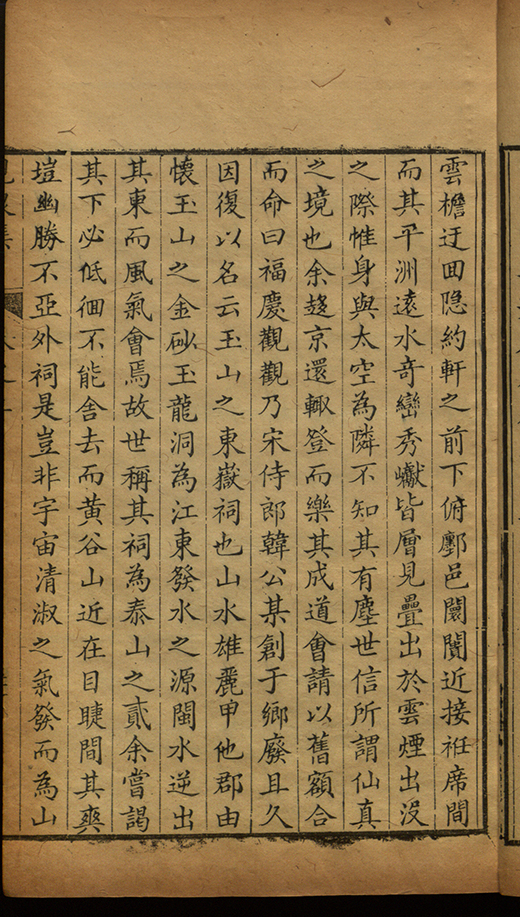 雲檐迂回隐約軒之前下俯鄽邑闤闠近接袵席間
而其平洲遠水竒巒秀巘皆層見疊出於雲煙出沒
之際惟身與太空為隣不知其有塵世信所謂仙真
之境也余趍京還輙登而樂其成道會請以舊額合
而命曰福慶觀觀乃宋侍郎韓公某創于鄉廢且久
因復以名云玉山之東嶽祠也山水雄麗甲他郡由
懐玉山之金砂玉龍洞為江東發水之源閩水逆出
其東而風氣會焉故世稱其祠為泰山之貳余嘗謁
其下必低徊不能舍去而黄谷山近在目睫間其爽
塏幽勝不亞外祠是豈非宇宙清淑之氣發而為山